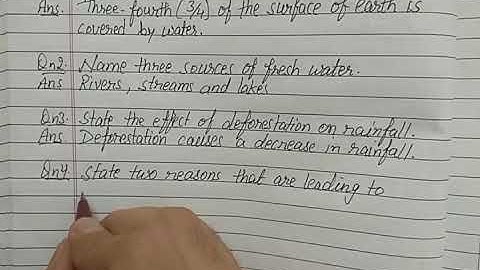 Ans. Three-fourth (3/4) of the surface of earth is
covered by water.
Qn2. Name three sources of fresh water.
Ans Rivers, streams and lakes
Qn3. State the effect of deforestation on rainfall.
Ans Deforestation causes a decrease in rainfall.
Qn4. State two reasons that are leading to